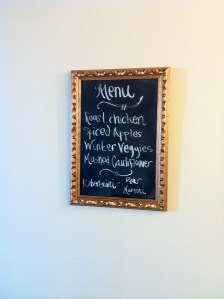 Menu
Roast Chicken
Spiced Apples
Winter Veggies
Mashed Cauliflower
Pear
Martini